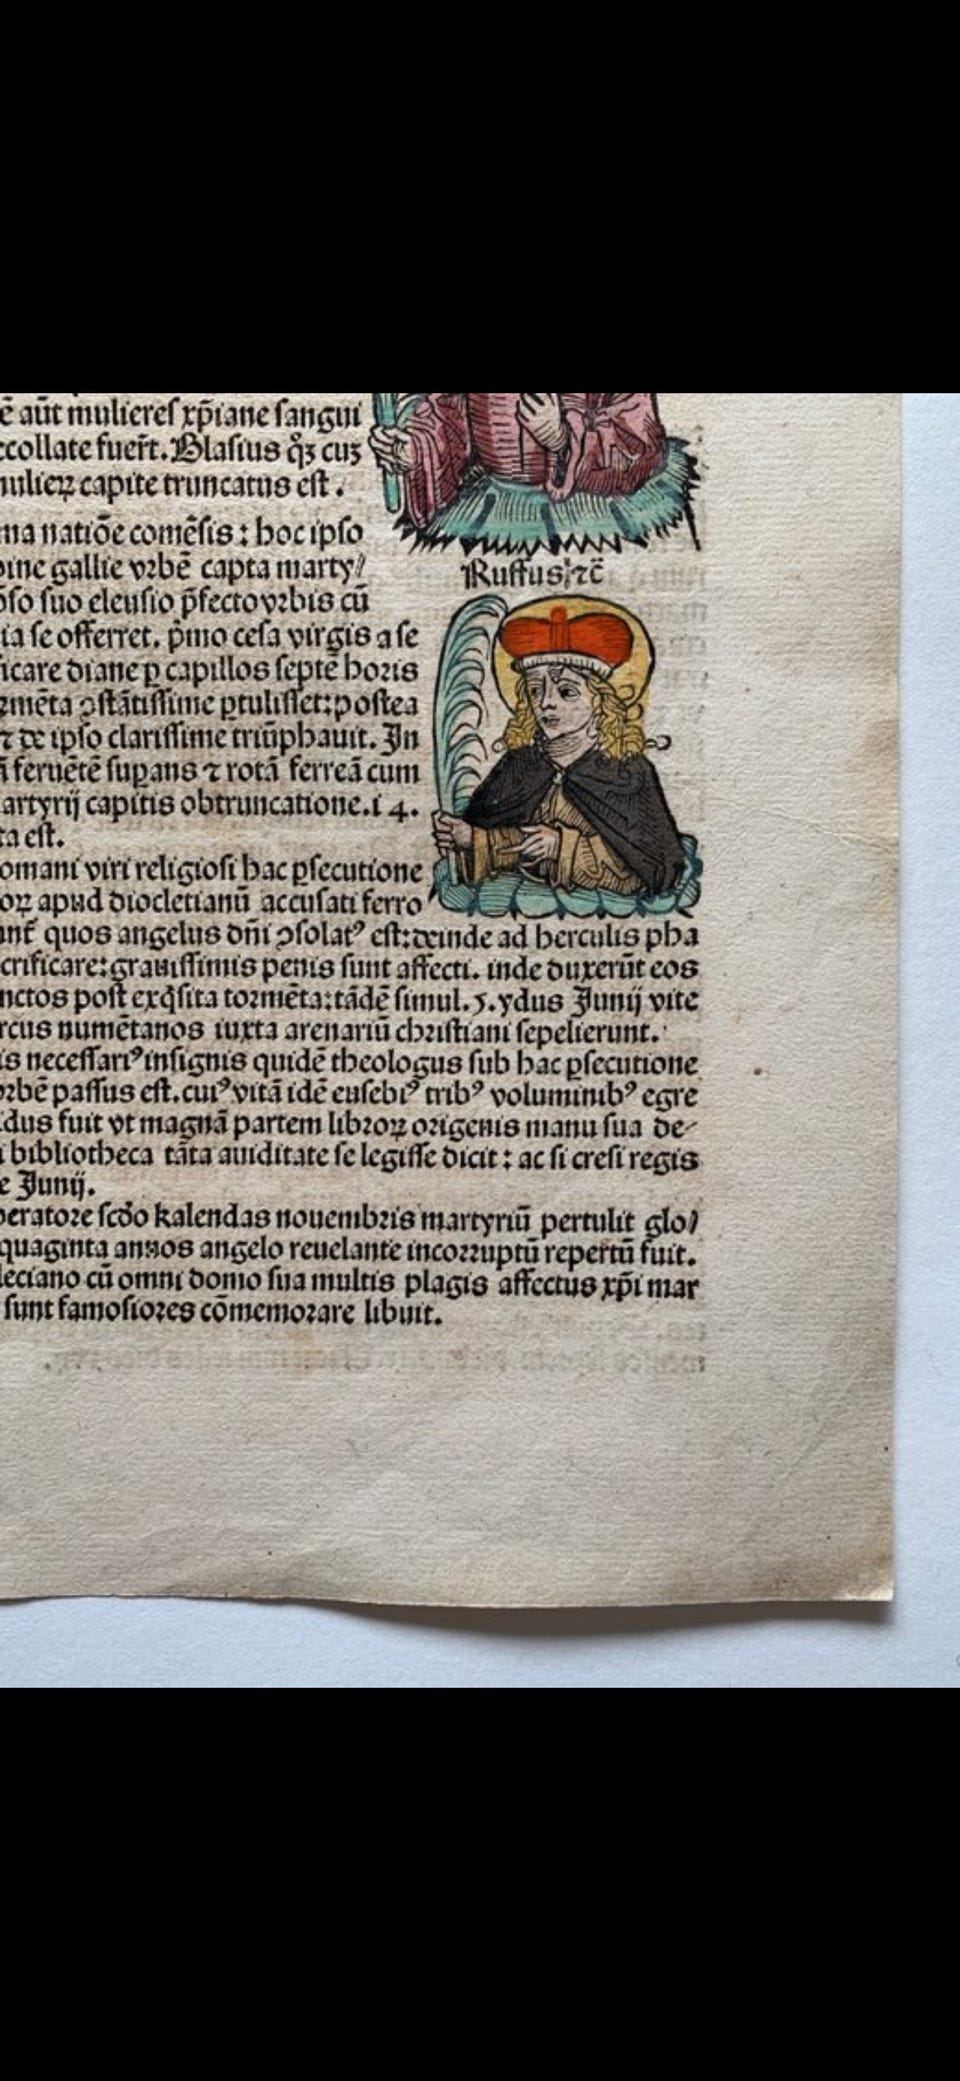 ē aūt mulieres xp̄iane sangui
ccollate fuer̄t. Blasius qͦꝫ cuꝫ
mulieꝝ capite truncatus est.
ma natiōe comēsis: hoc ipso
pine gallie vrbē capta marty/
pso suo eleusio p̄fecto vrbis cū
ia se offerret. p̄mo cesa virgis a se
icare diane ꝑ capillos septē horis
rmēta ꝯstātissime ꝑtulisset: postea
⁊ de ipso clarissime triūphauit. In
ā feruētē suꝑans ⁊ rotā ferreā cum
artyrij capitis obtruncatione. i 4.
ta est.
Ruffus ⁊c̄
omani viri religiosi hac ꝑsecutione
oꝝ apud diocletianū accusati ferro
unt̄ quos angelus dn̄i ꝯsolatꝰ est: deinde ad herculis pha
crificare: grauissimis penis sunt affecti. inde duxerūt eos
nctos post exq̇sita tormēta: tādē simul. 5. ydus Junij vite
rcus numētanos iuxta arenariū christiani sepelierunt.
is necessariꝰ insignis quidē theologus sub hac ꝑsecutione
vrbē passus est. cuiꝰ vitā idē eusebiꝰ tribꝰ voluminibꝰ egre
idus fuit vt magnā partem libroꝝ origenis manu sua de-
bibliotheca tāta auiditate se legisse dicit: ac si cresi regis
e Junij.
peratore scd̄o kalendas nouembris martyriū pertulit glo/
quaginta annos angelo reuelante incorruptū repertū fuit.
leciano cū omni domo sua multis plagis affectus xp̄i mar
sunt famosiores cōmemorare libuit.